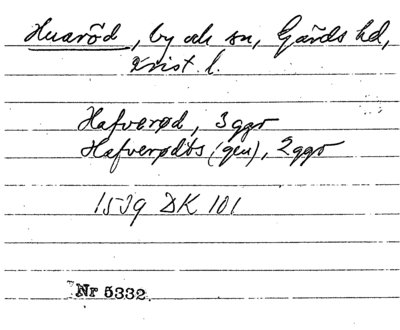 Huaröd, by och sn, Gärds hd,
Krist. l.
Hafverød, 3 ggr
Hafverødts (gen), 2 ggr
1539 DK 101
Nr 5332